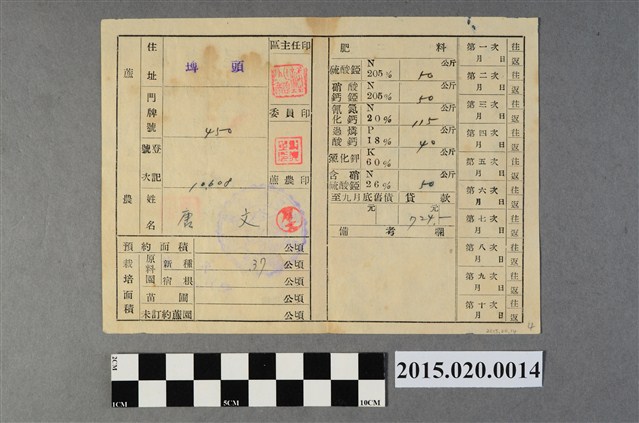 住址 埤頭
門牌號 450
登記號次 10608
蔗農姓名 唐文
區主任印
委員印
蔗農印
預約面積 公頃
栽培面積
原料園 新種 .37 公頃
宿根 公頃
苗圃 公頃
未訂約蔗園 公頃
肥料
硫酸錏 N 20.5% 50 公斤
硝酸錏鈣 N 20.5% 50 公斤
氰氮化鈣 N 20% 115 公斤
過燐酸鈣 P 18% 40 公斤
氯化钾 K 60% 公斤
含硝硫酸錏 N 26% 50 公斤
至九月底舊債 元
貸款 元
724.-
備考欄
第一次 月 日 往返
第二次 月 日 往返
第三次 月 日 往返
第四次 月 日 往返
第五次 月 日 往返
第六次 月 日 往返
第七次 月 日 往返
第八次 月 日 往返
第九次 月 日 往返
第十次 月 日 往返
2015.020.0014
2CM
1CM
5CM
10CM